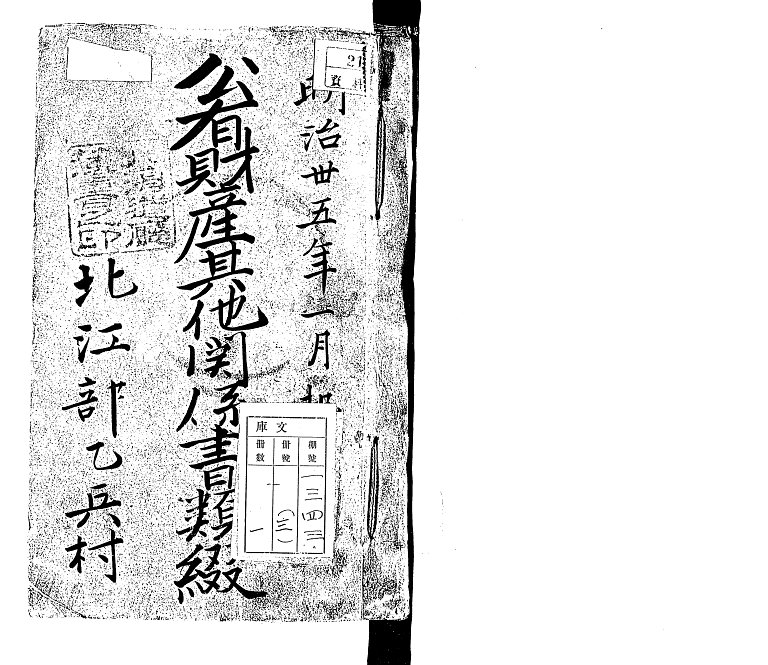 明治卅五年一月
公有財産其他関係書類綴
北江部乙兵村
21
資料
文庫
棚號
冊號
冊數
一三四三
一(三)
一